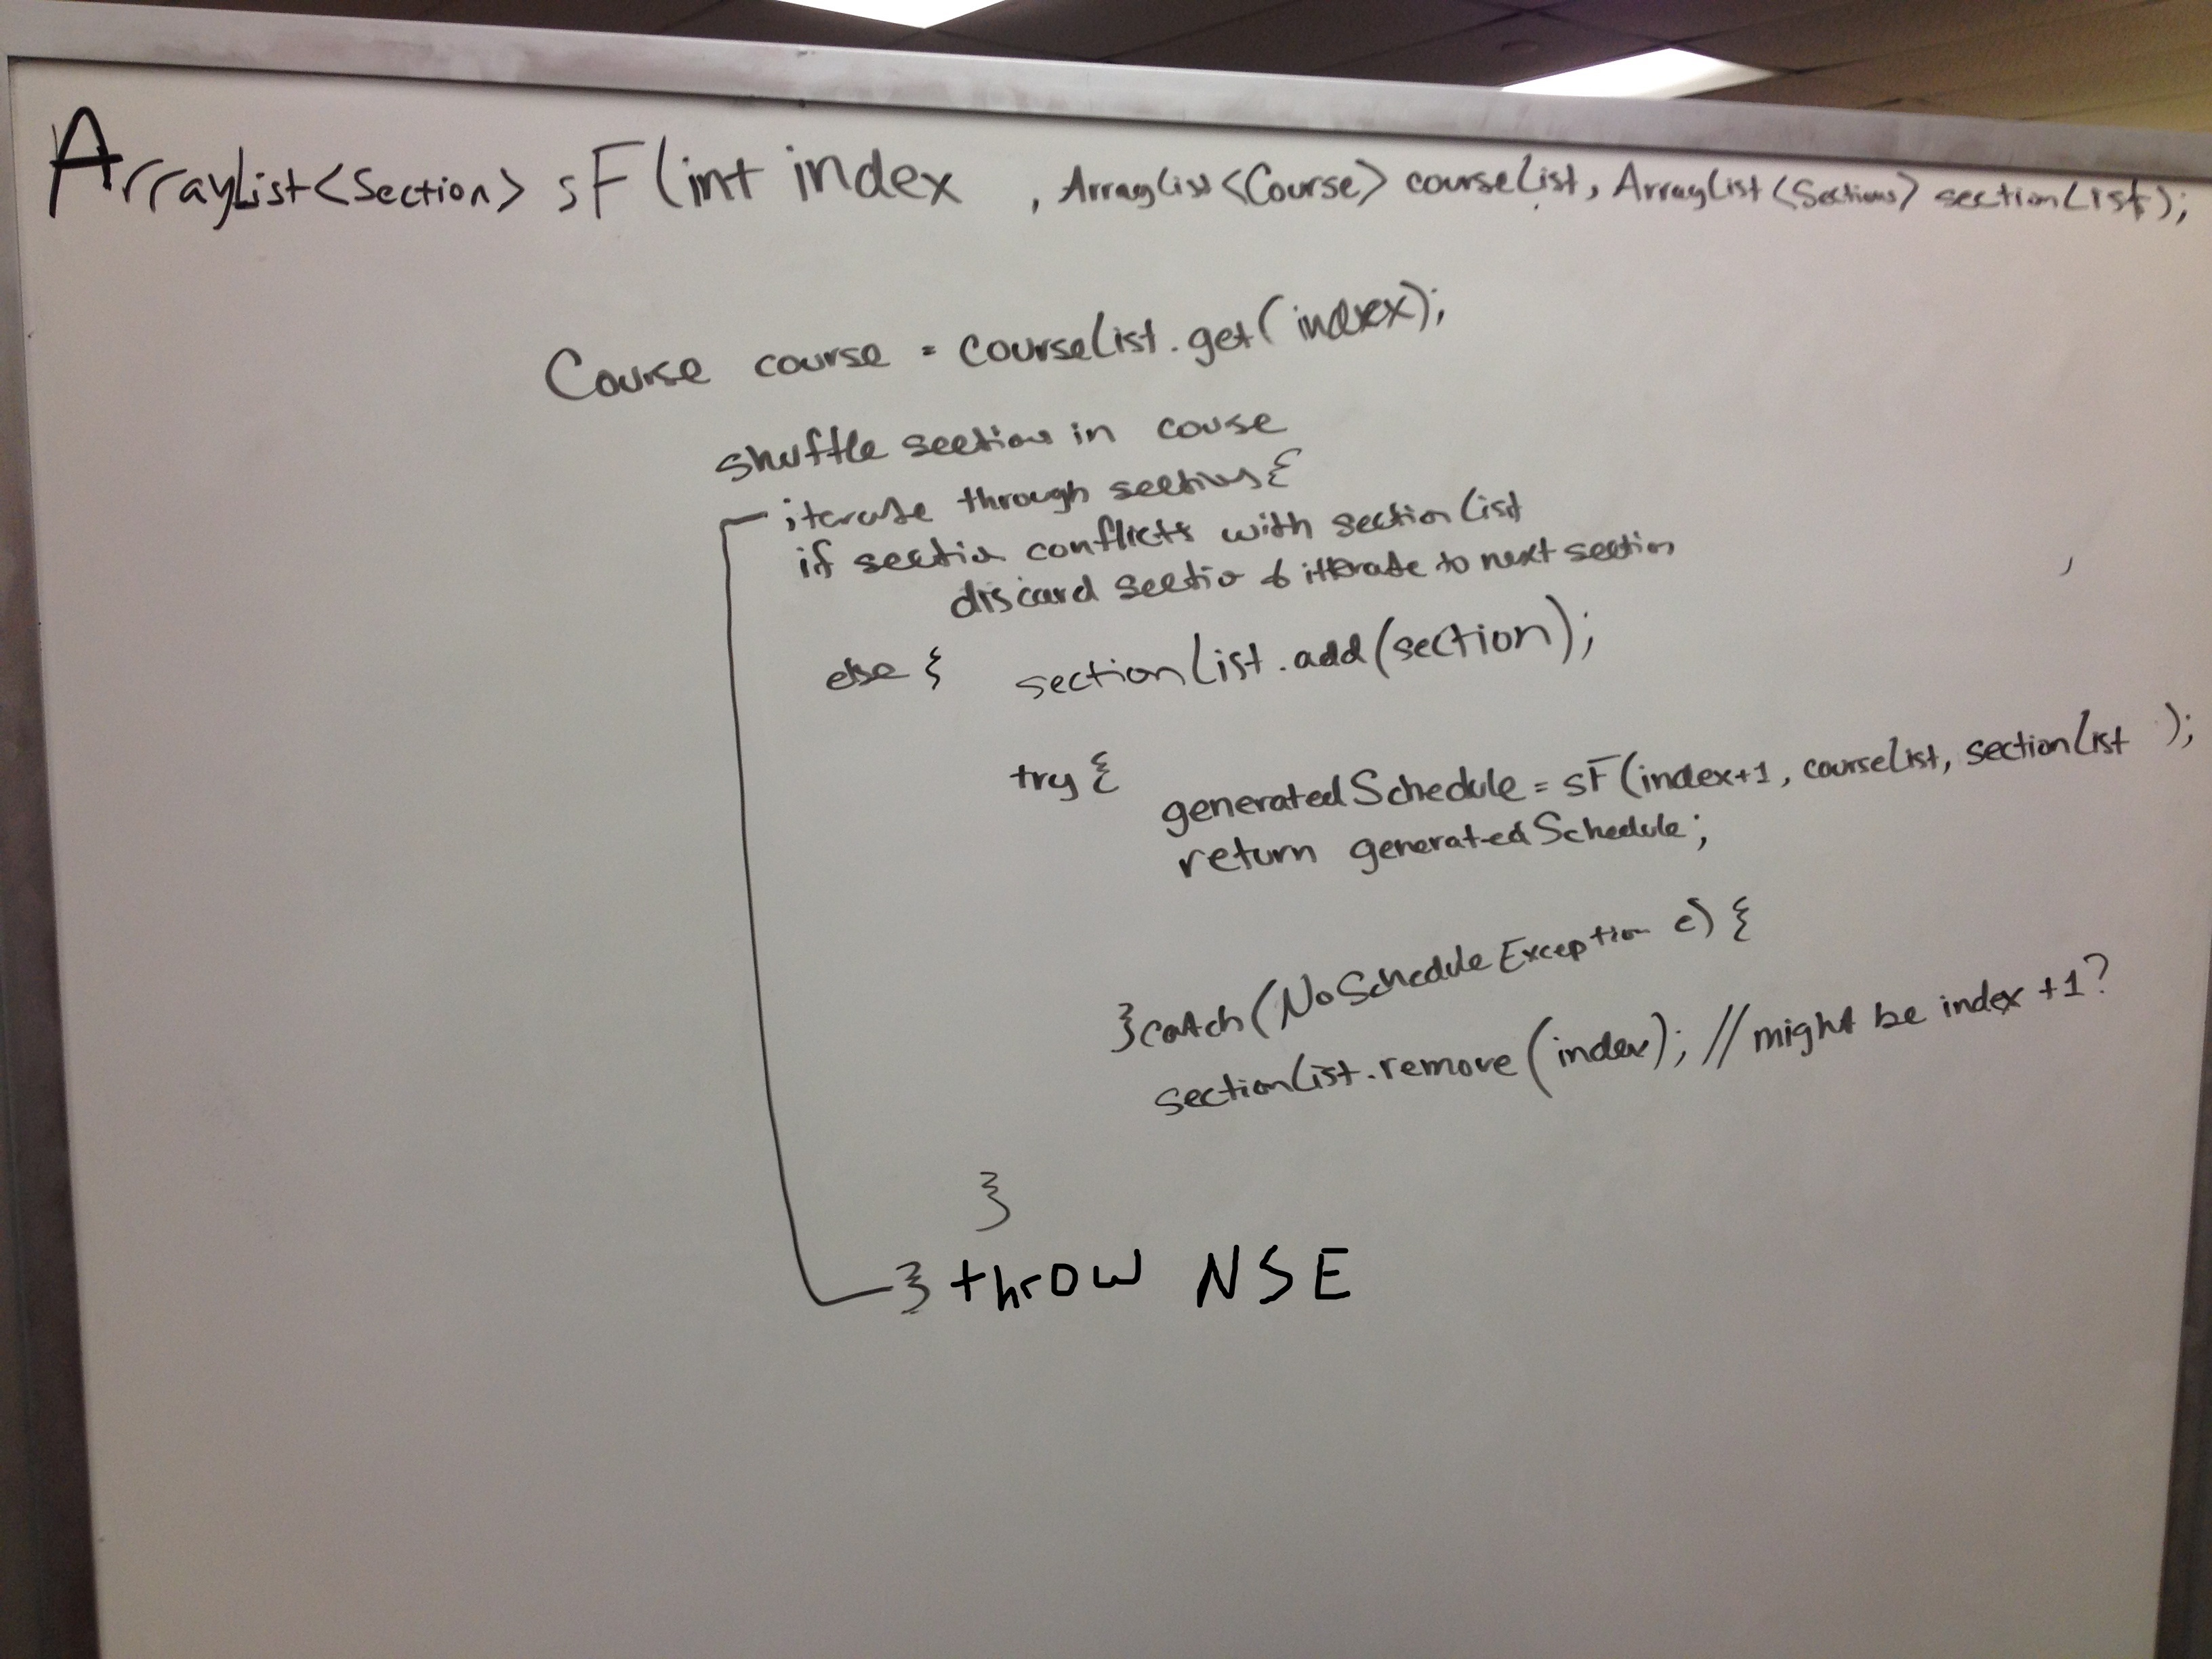 ArrayList<Section> sF(int index , ArrayList<Course> courseList, ArrayList<Sections> sectionList);
Course course = courseList.get(index);
shuffle sections in couse
iterate through sections {
if section conflicts with sectionList
discard sectio & itterate to next section
else { sectionList.add(section);
try {
generatedSchedule = sF(index+1, courseList, sectionList );
return generatedSchedule;
} catch (NoScheduleException e) {
sectionList.remove(index); // might be index +1?
}
} throw NSE